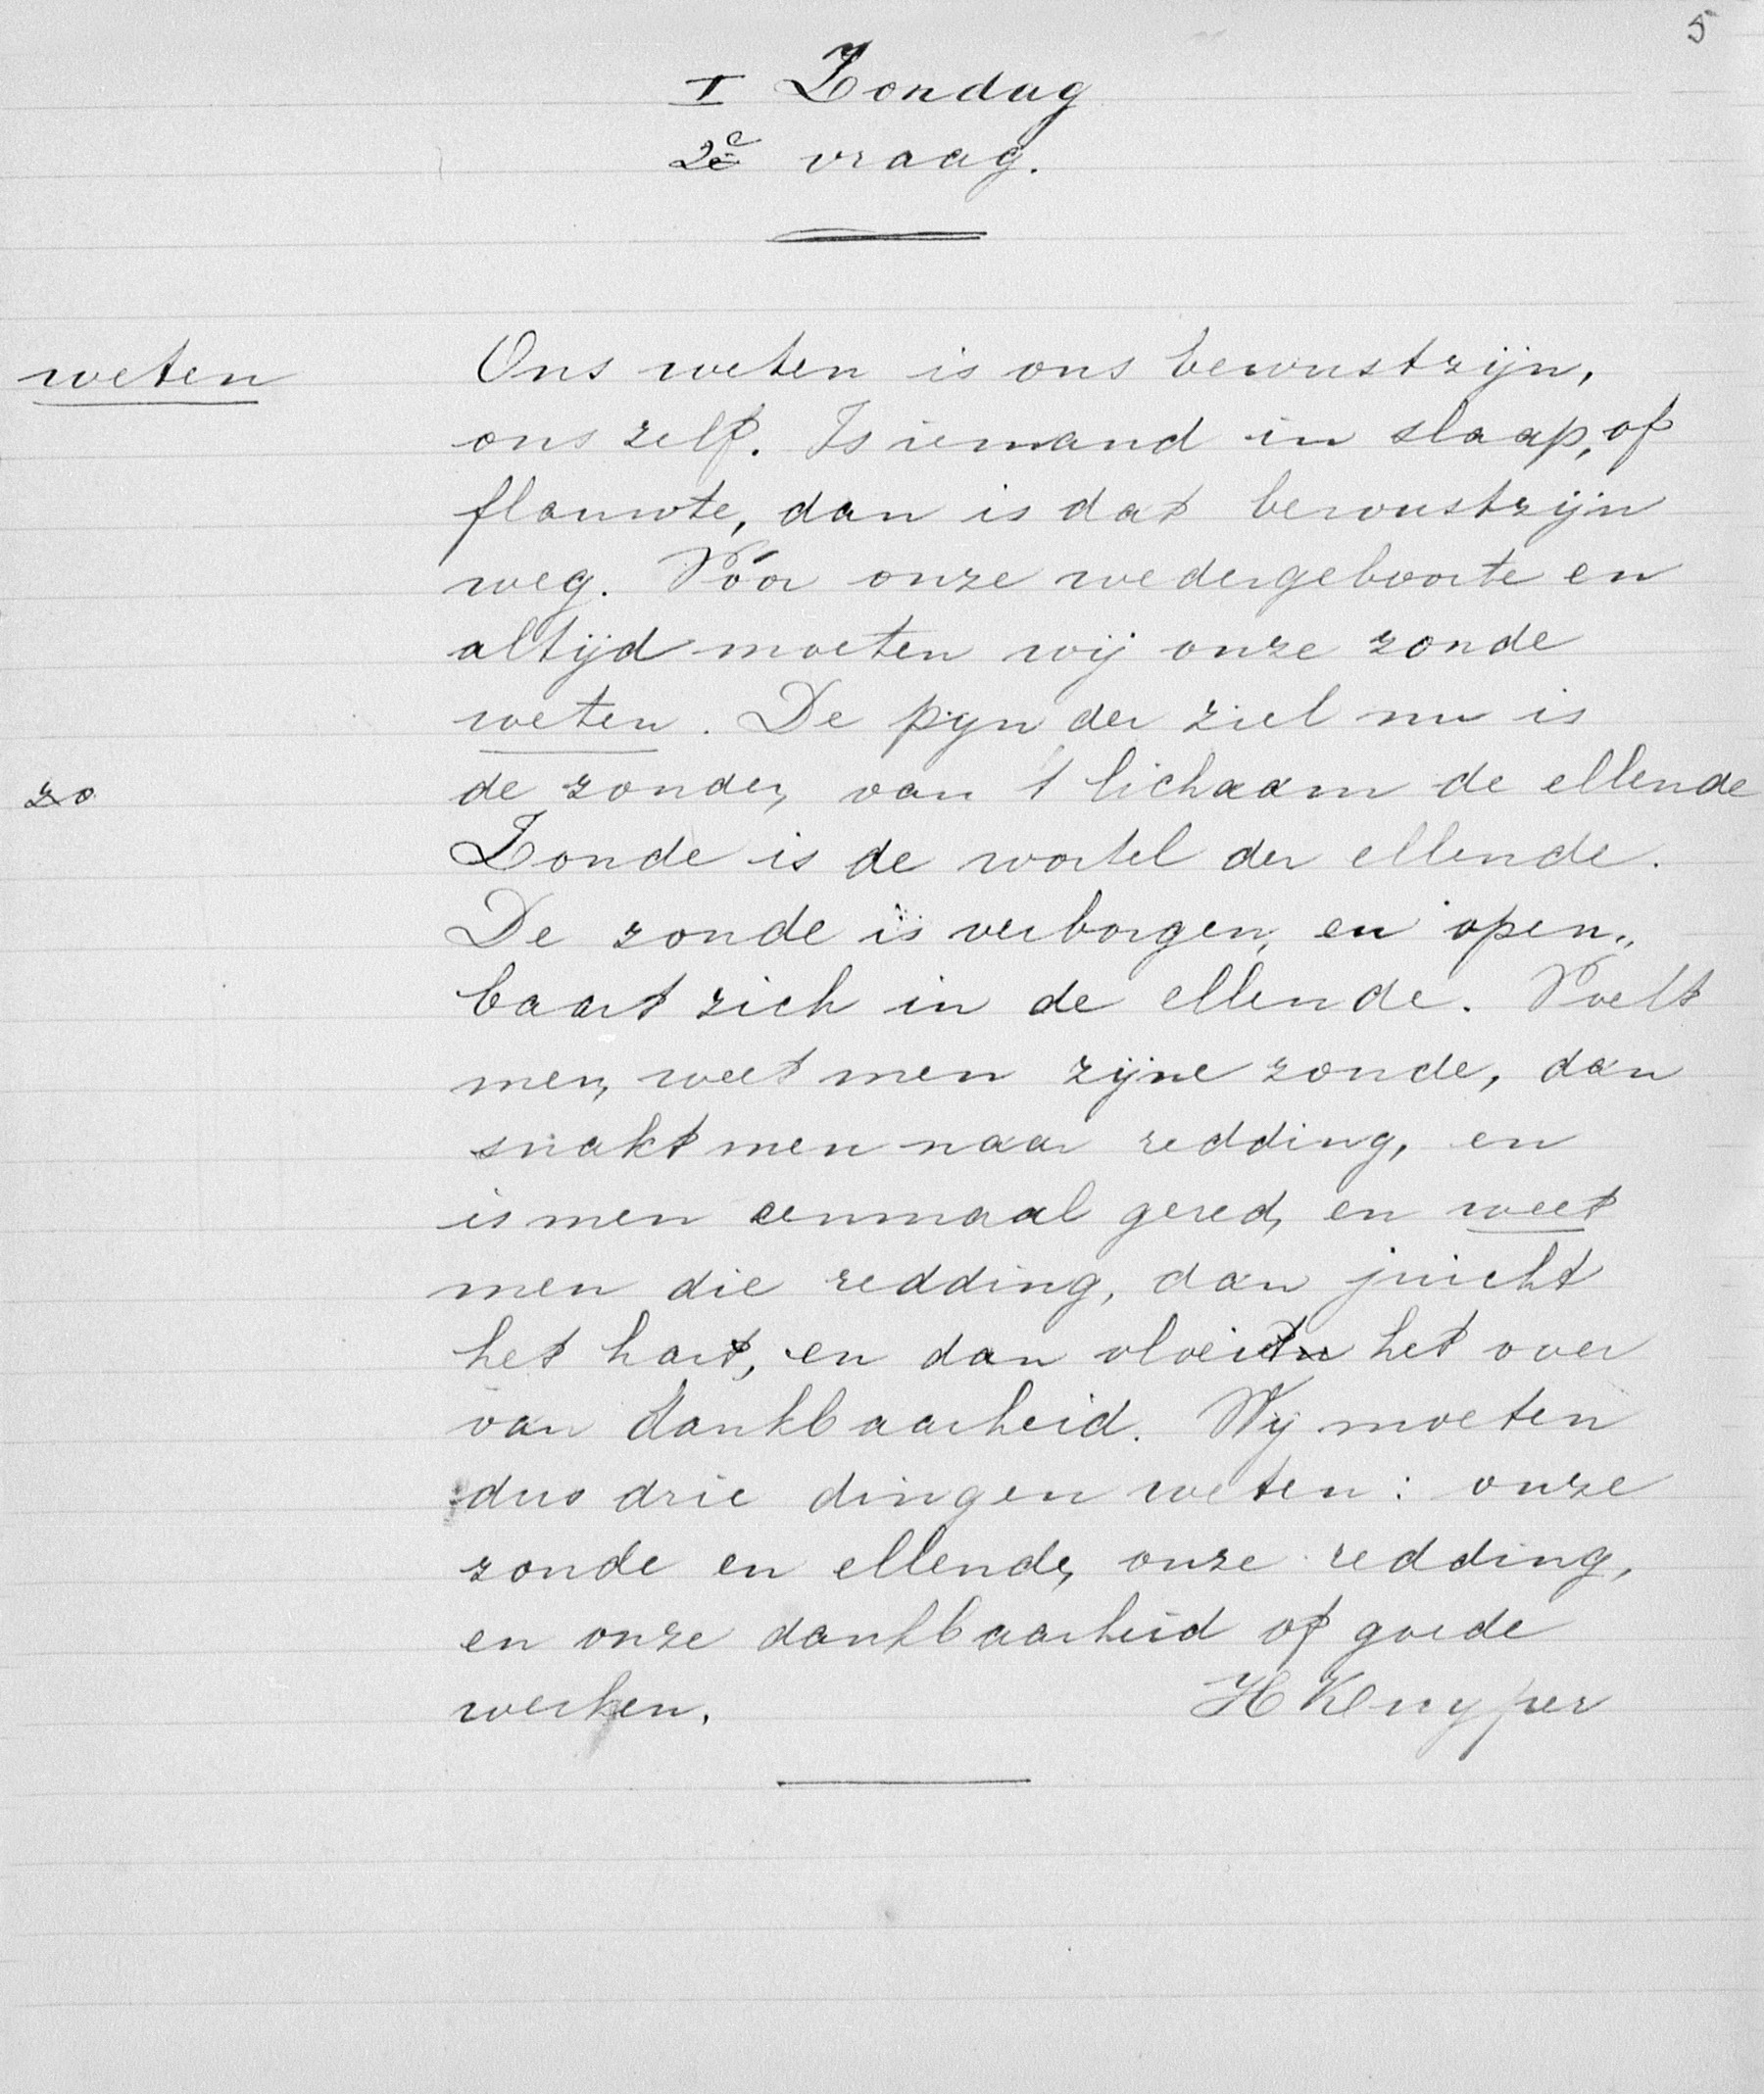 5
I Zondag
2e vraag.
weten
Ons weten is ons bewustzijn,
ons zelf. Is iemand in slaap, of
flauwte, dan is dat bewustzijn
weg. Vóór onze wedergeboorte en
altijd moeten wij onze zonde
weten. De pijn der ziel nu is
zo
de zonde, van 't lichaam de ellende
Zonde is de wortel der ellende.
De zonde is verborgen, en open„
baart zich in de ellende. Voelt
men, weet men zijne zonde, dan
snakt men naar redding, en
is men eenmaal gered, en weet
men die redding, dan juicht
het hart, en dan vloeit het over
van dankbaarheid. Wij moeten
dus drie dingen weten: onze
zonde en ellende, onze redding,
en onze dankbaarheid of goede
werken.
H Kuyper